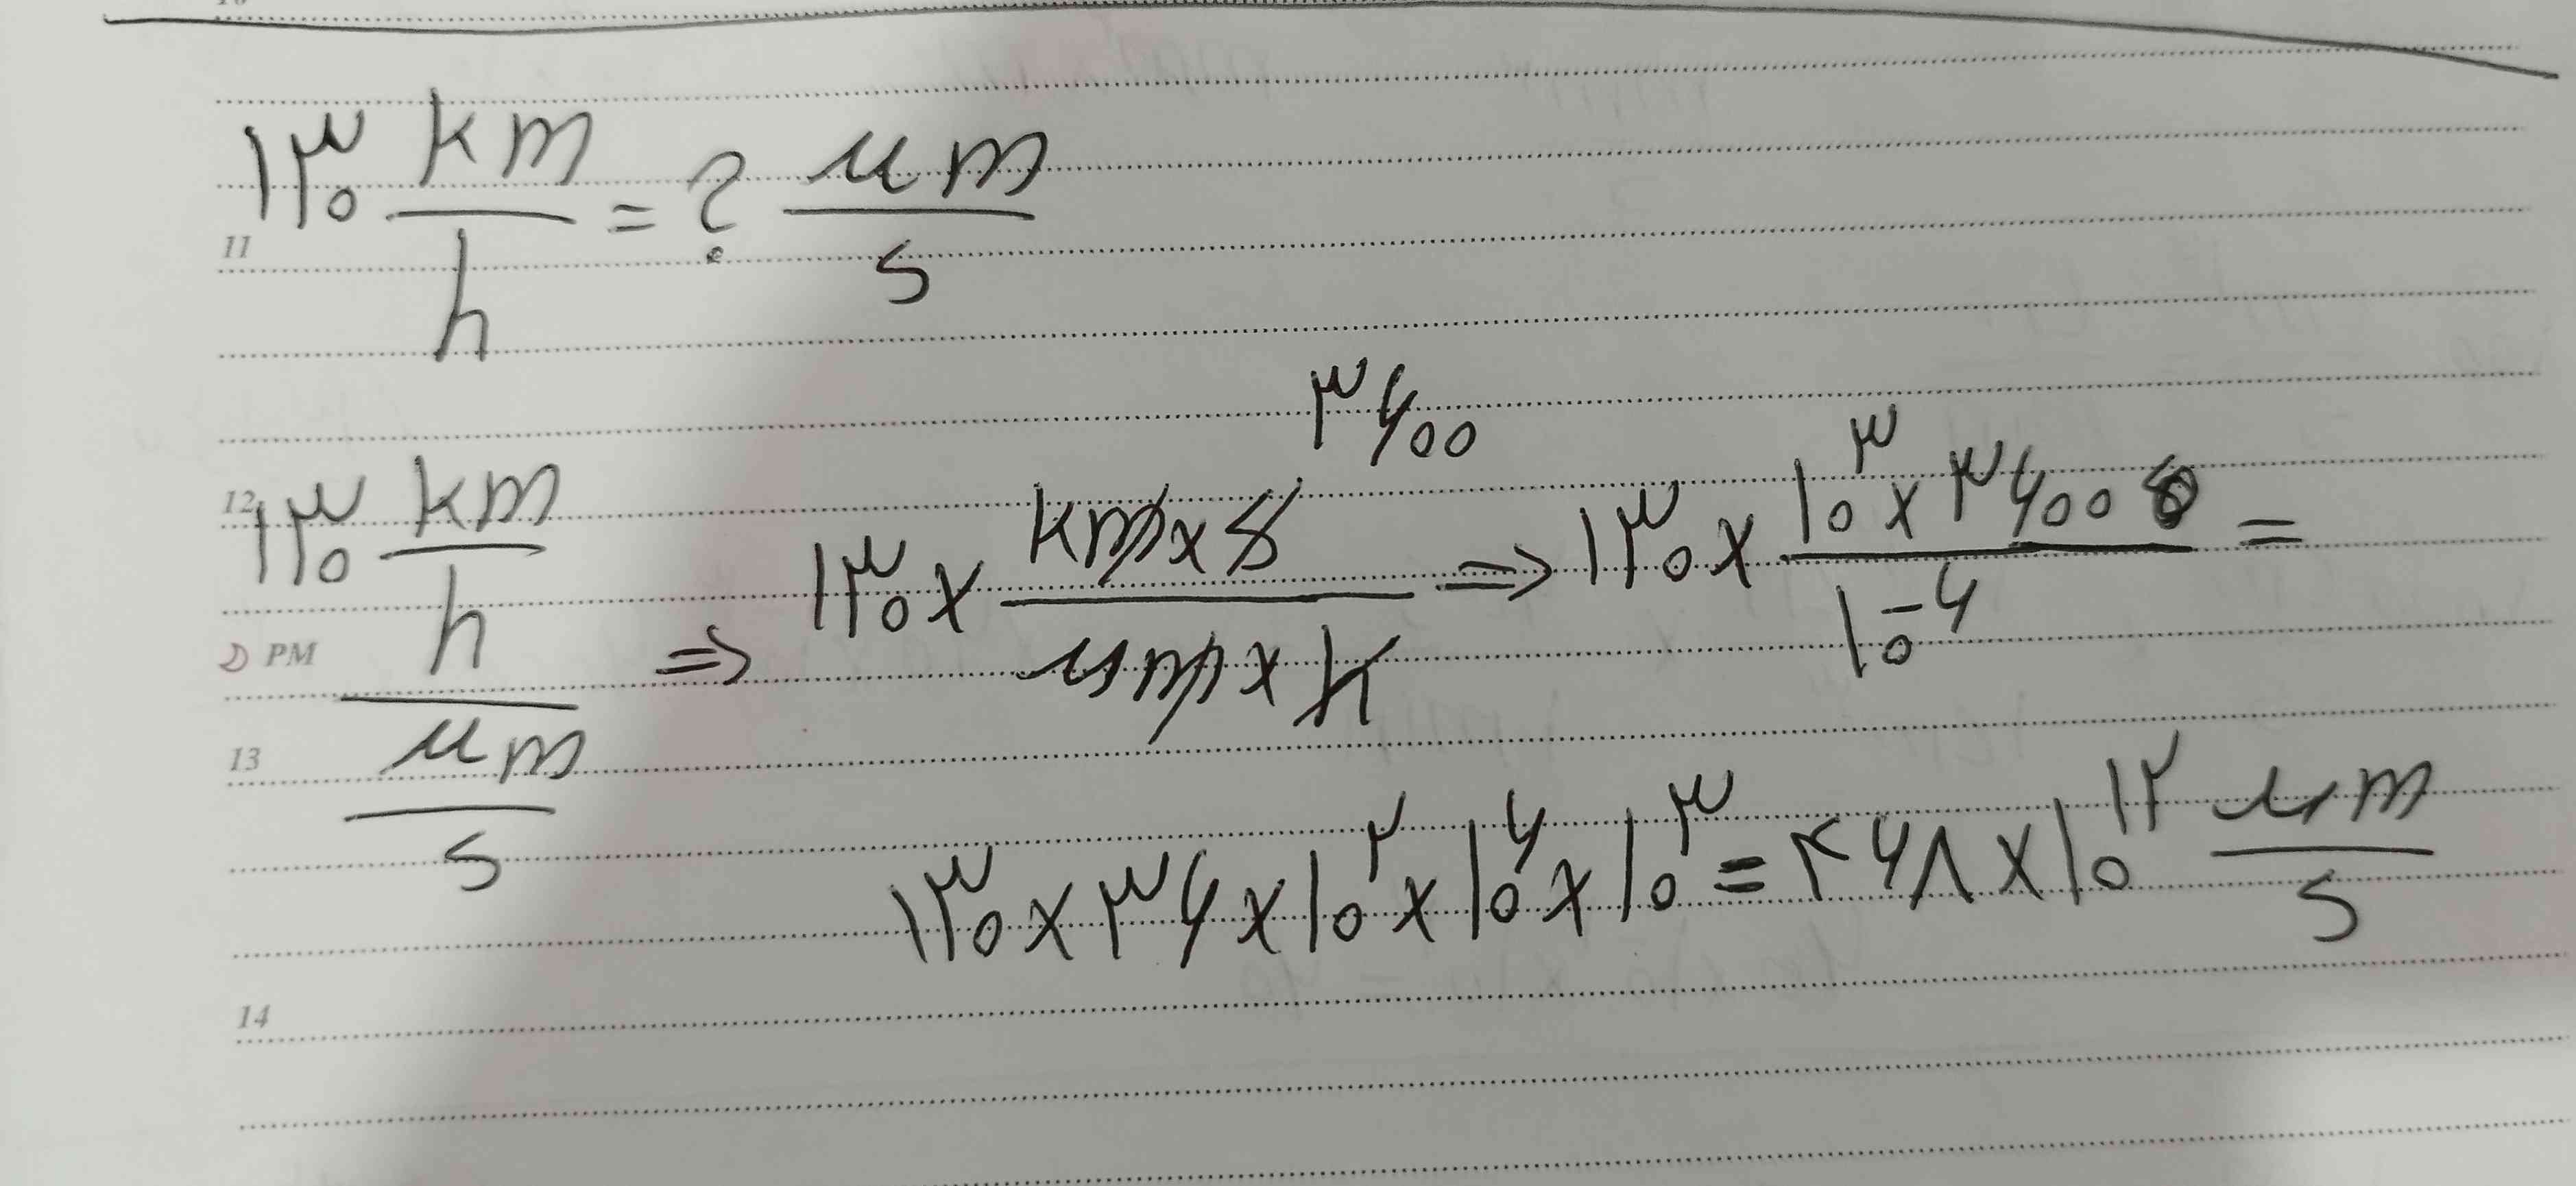 ۱۳۰ km/h = ? μm/s
11
۳۶۰۰
12
۱۳۰ km/h / μm/s ⇒ ۱۳۰ × km × s / μm × h ⇒ ۱۳۰ × ۱۰^۳ × ۳۶۰۰ / ۱۰^-۶ =
PM
13
۱۳۰ × ۳۶ × ۱۰^۲ × ۱۰^۶ × ۱۰^۳ = ۴۶۸ × ۱۰^۱۲ μm/s
14